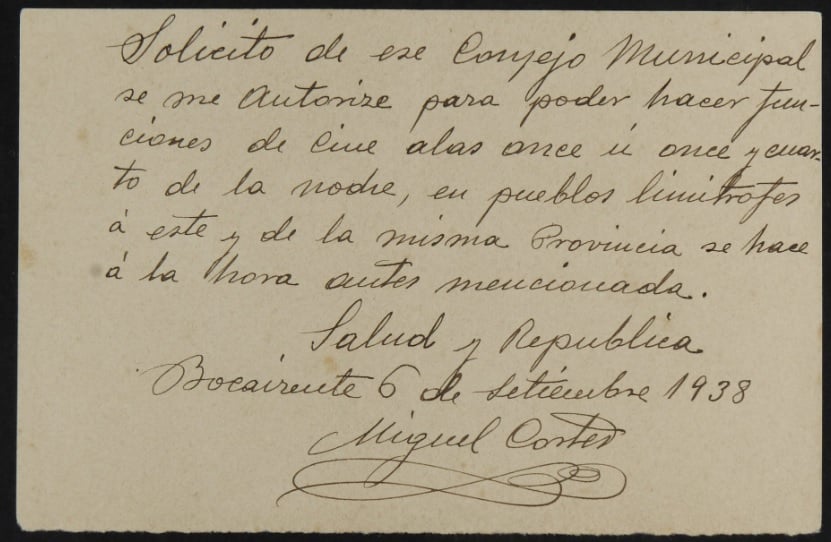 Solicito de ese Consejo Municipal
se me Autorize para poder hacer fun-
ciones de Cine alas once ú once y cuar-
to de la noche, en pueblos limitrofes
á este y de la misma Provincia se hace
á la hora antes mencionada.
Salud y Republica
Bocairente 6 de Setiembre 1938
Miguel Cortés